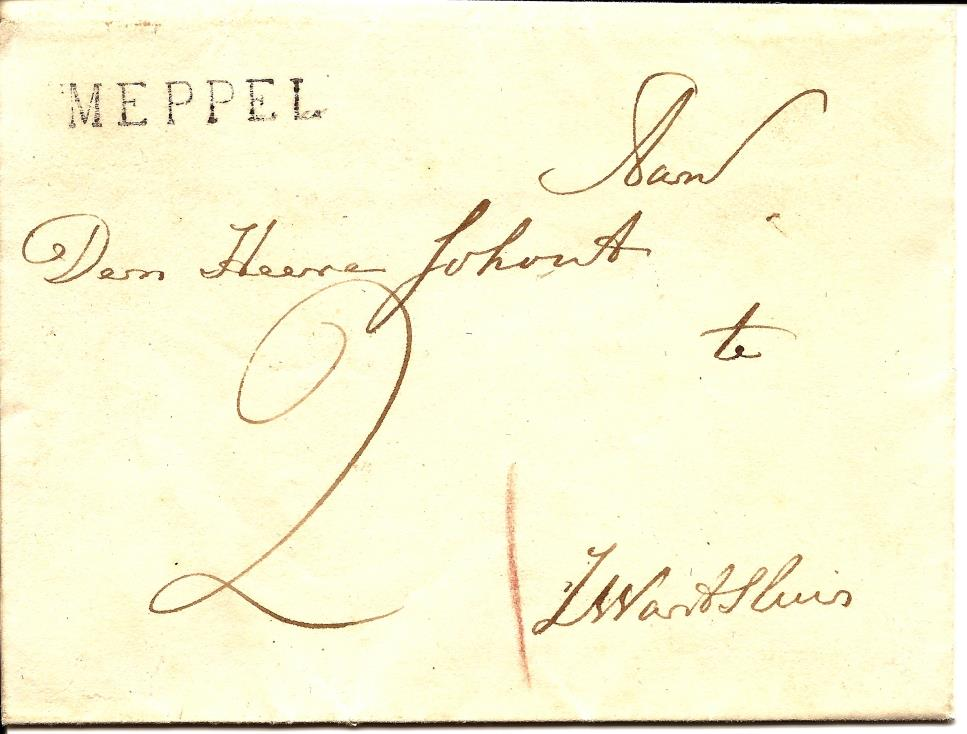 MEPPEL
Aan
Den Heere Johont
te
2
ZwartSluis